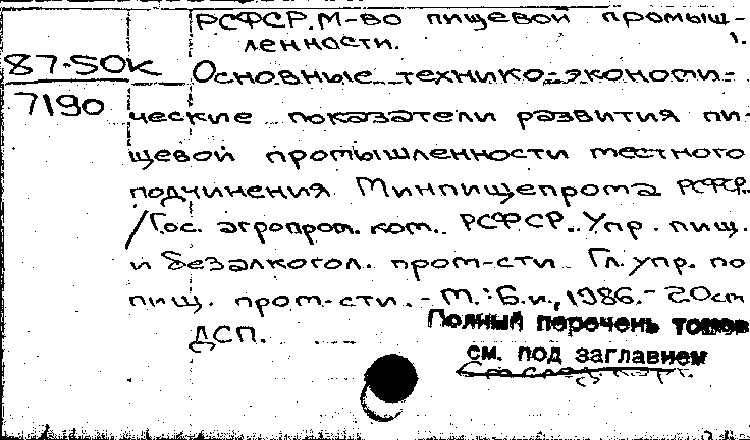 РСФСР. М-во пищевой промыш-
ленности. 1.
87-50к
7190
Основные технико-экономи-
ческие показатели развития пи-
щевой промышленности местного
подчинения Минпищепрома РСФСР.
/Гос. агропром. ком. РСФСР. Упр. пищ.
и безалкогол. пром-сти. Гл. упр. по
пищ. пром-сти. - М.: Б.и., 1986. - 20см
ДСП.
Полный перечень томов
см. под заглавием
См след карт.